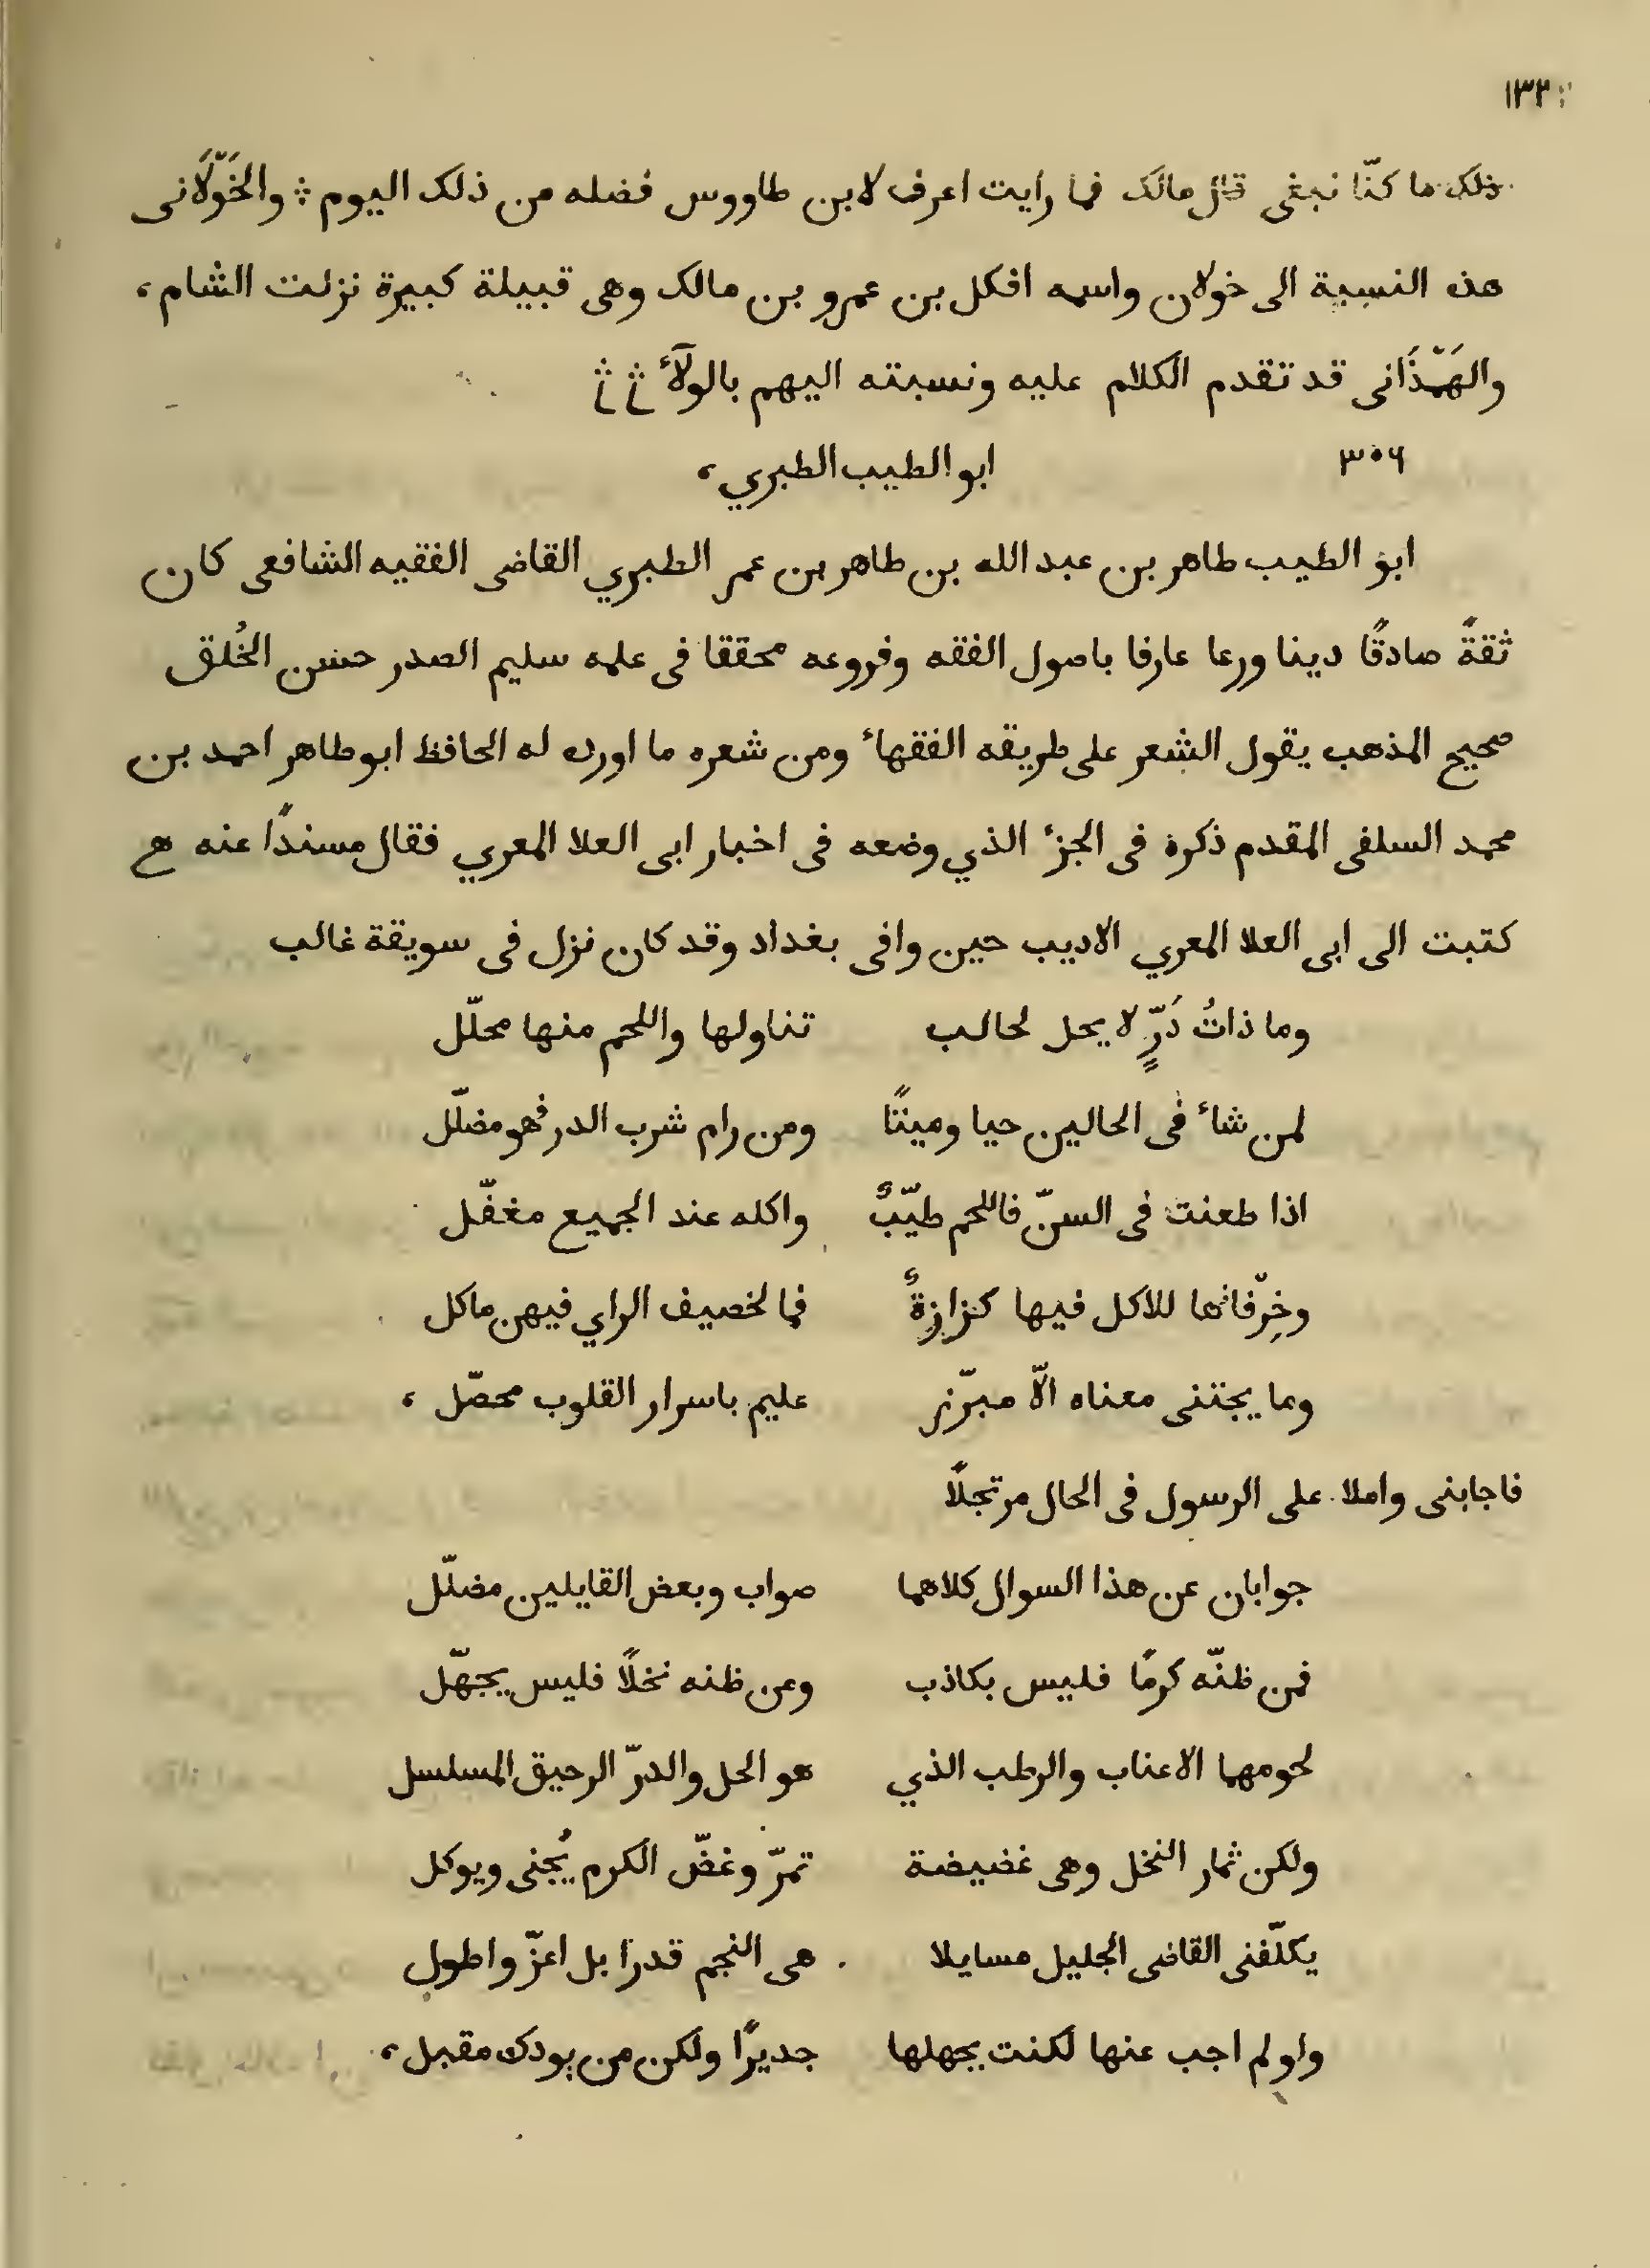 ١٣٢
ذلك ما كنّا نبغى قال مالك فما رايت اعرف لابن طاووس فضله من ذلك اليوم والخَوْلَانى
هذه النسبة الى خولان واسمه افكل بن عمرو بن مالك وهى قبيلة كبيرة نزلت الشام ،
والهَمْدَانى قد تقدم الكلام عليه ونسبته اليهم بالولآء
٣٠٦ ابو الطيب الطبري ،
ابو الطيب طاهر بن عبد الله بن طاهر بن عمر الطبري القاضى الفقيه الشافعى كان
ثقةً صادقًا دينا ورعا عارفا باصول الفقه وفروعه محققا فى علمه سليم الصدر حسن الخُلق
صحيح المذهب يقول الشعر على طريقه الفقهاء ومن شعره ما اورده له الحافظ ابو طاهر احمد بن
محمد السلفى المقدم ذكره فى الجزء الذي وضعه فى اخبار ابى العلا المعري فقال مسندًا عنه
كتبت الى ابى العلا المعري الاديب حين وافى بغداد وقد كان نزل فى سويقة غالب
وما ذاتُ دَرٍّ لا يحل لحالب تناولها واللحم منها محلّل
لمن شاء فى الحالين حيا وميتًا ومن رام شرب الدر فهو مضلّل
اذا طعنت فى السنّ فاللحم طيّبٌ واكله عند الجميع مغفّل
وخِرّفانها للاكل فيها كزازةٌ فما لخصيف الراي فيهن ماكل
وما يجتنى معناه الّا مبرّز عليم باسرار القلوب محصّل ،
فاجابنى واملا على الرسول فى الحال مرتجلًا
جوابان عن هذا السوال كلاهما صواب وبعض القايلين مضلّل
فمن ظنّه كرمًا فليس بكاذب ومن ظنه نخلًا فليس يجهّل
لحومهما الاعناب والرطب الذي هو الحل والدرّ الرحيق المسلسل
ولكن ثمار النخل وهى غضيضة تمرّ وغضّ الكرم يُجنى ويوكل
يكلّفنى القاضى الجليل مسايلا هى النجم قدرا بل اعزّ واطول
ولو لم اجب عنها لكنت بجهلها جديرًا ولكن من يودك مقبل ،